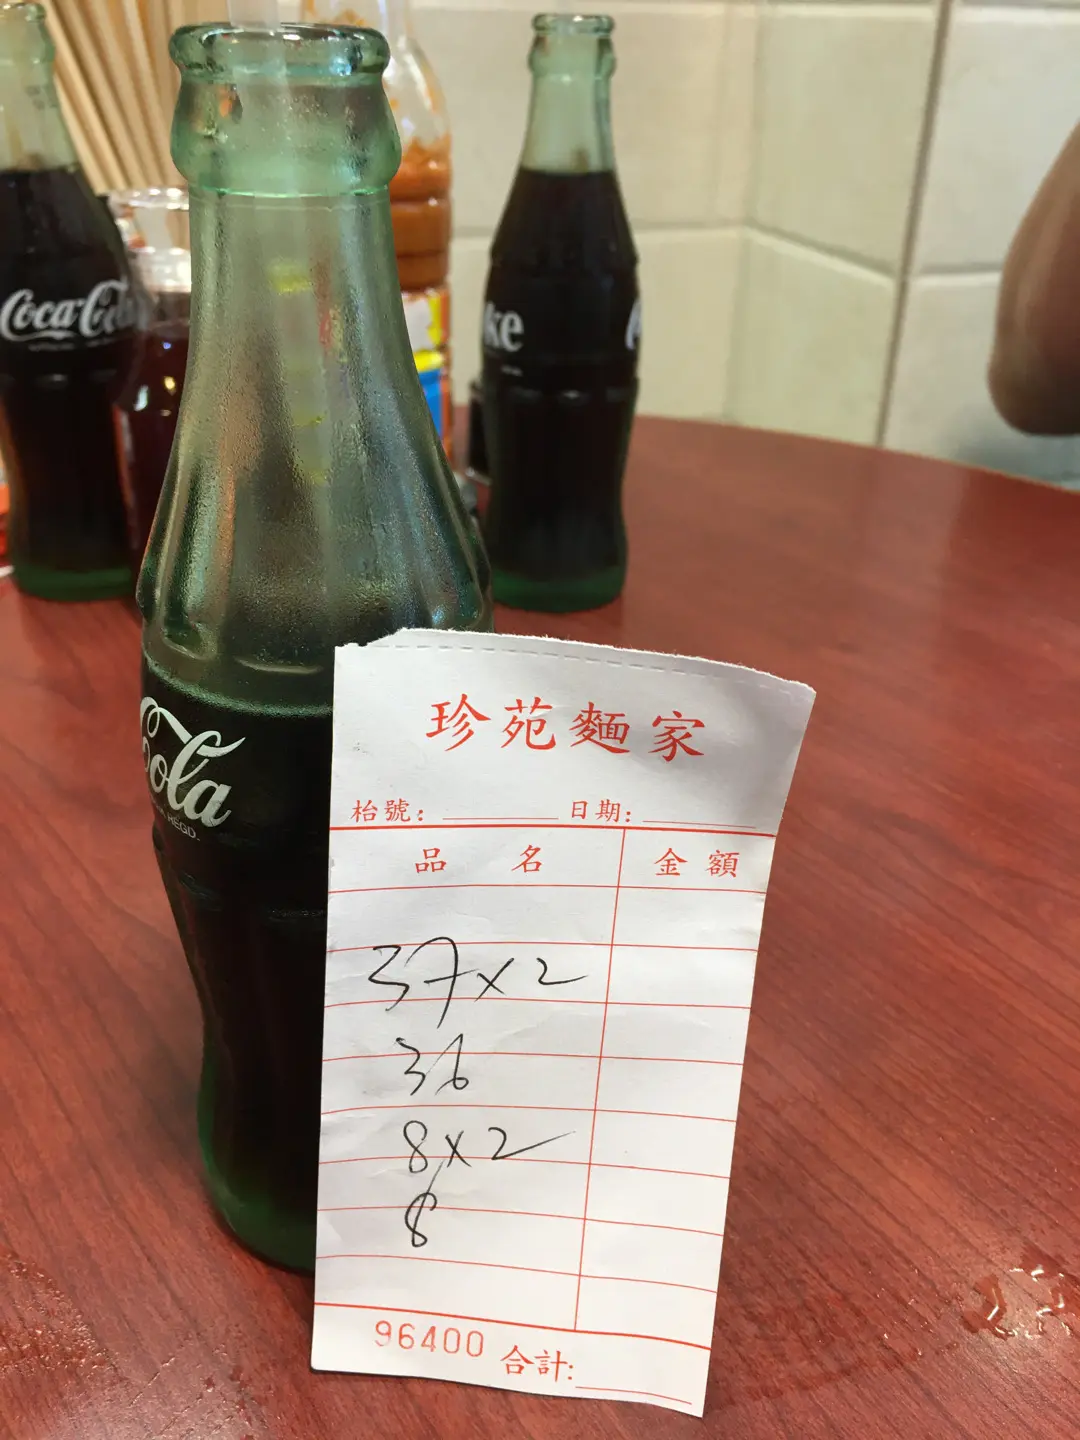 Coca-Cola
ke
Cola
REGD.
珍苑麵家
枱號: 日期:
品名 金額
37x2
36
8x2
8
96400 合計: